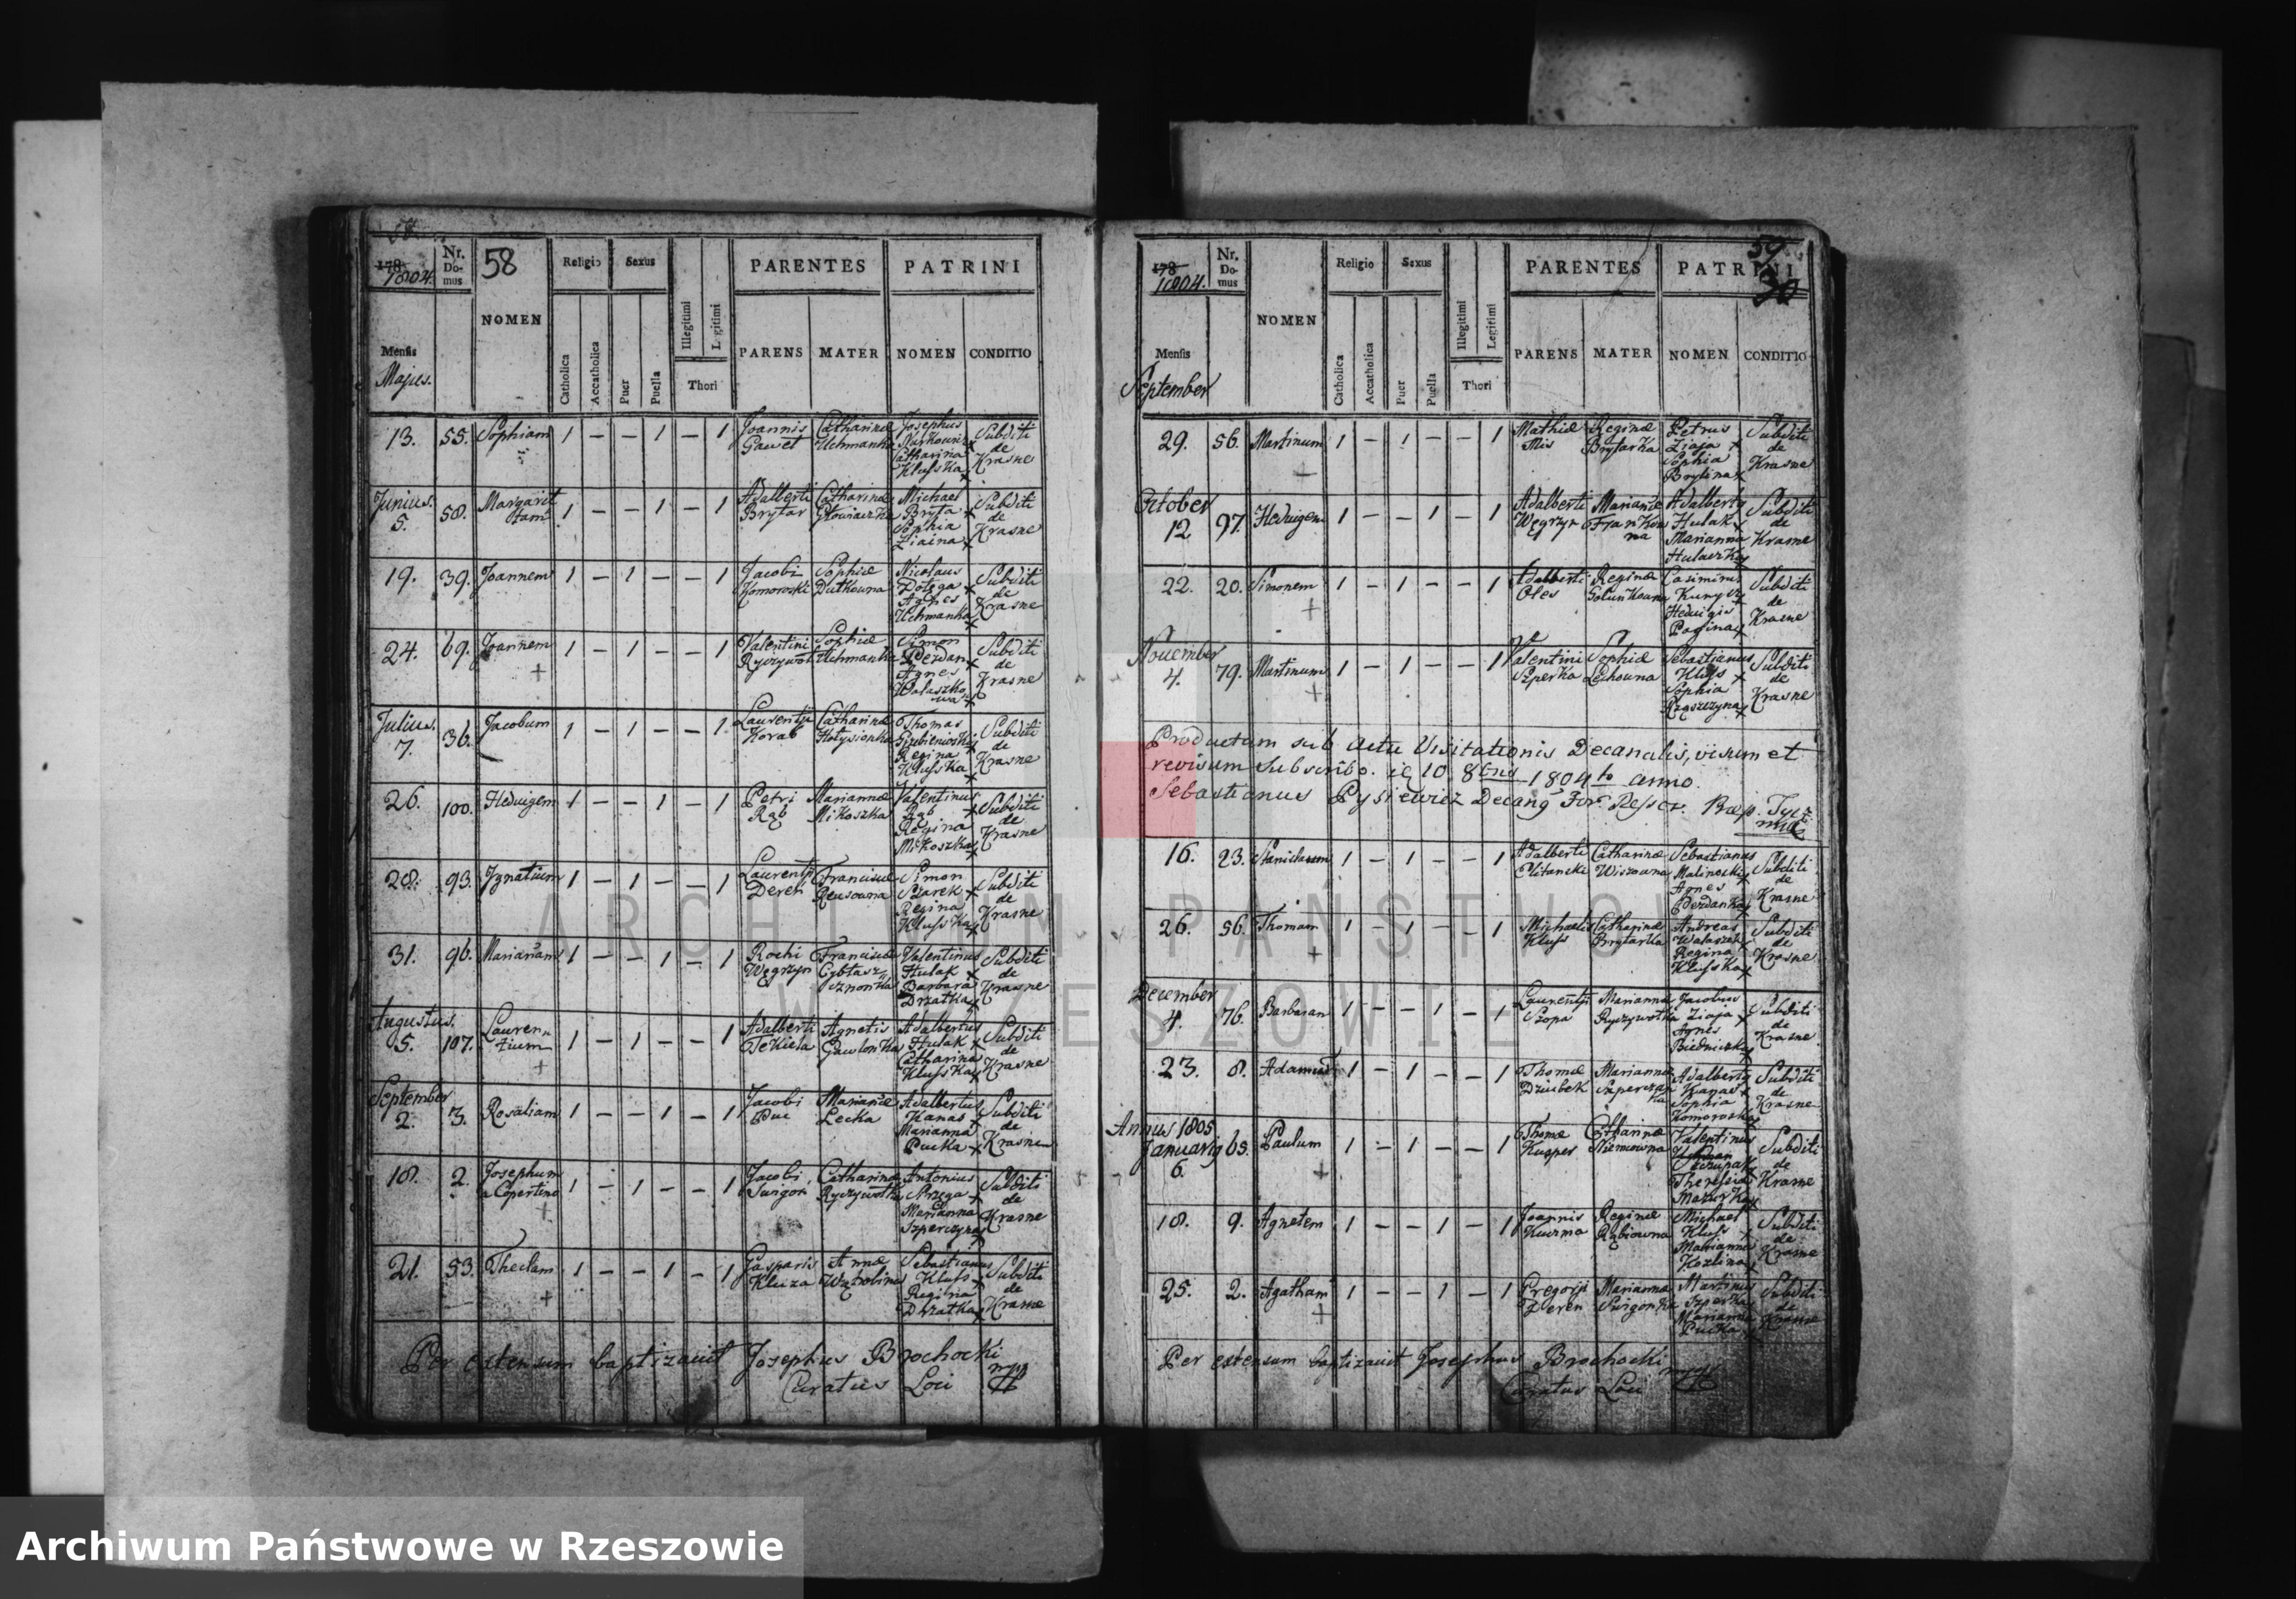 58
1804.
Nr. Domus
58
NOMEN
Religio
Sexus
Catholica
Accatholica
Puer
Puella
Illegitimi
Legitimi
Thori
PARENTES
PARENS
MATER
PATRINI
NOMEN
CONDITIO
Mensis
Majus.
13. 55. Sophiam 1 – – 1 – 1 Joannis Gawet Catharinæ Uchmanka Josephus Catharina Klusska Subditi de Krasne
Junius. 5. 58. Margaritam 1 – – 1 – 1 Adalberti Brytar Catharinæ Michael Bryta Sophia Ziaina Subditi de Krasne
19. 39. Joannem 1 – 1 – – 1 Jacobi Komoroski Sophiæ Dutkowna Nicolaus Agnes Uchmanka Subditi de Krasne
24. 69. Joannem 1 – 1 – – 1 Valentini Ryczywol Sophiæ Uchmanka Simon Agnes Subditi de Krasne
Julius. 7. 36. Jacobum 1 – 1 – – 1 Laurentii Korab Catharinæ Thomas Regina Klusska Subditi de Krasne
26. 100. Heduigem 1 – – 1 – 1 Petri Rąb Mariannæ Mikoszka Valentinus Rąb Regina Mikoszka Subditi de Krasne
28. 93. Ignatium 1 – 1 – – 1 Laurentii Deren Franciscæ Simon Regina Klusska Subditi de Krasne
31. 96. Mariannam 1 – – 1 – 1 Rochi Węgrzyn Franciscæ Valentinus Hulak Barbara Drzatka Subditi de Krasne
Augustus. 5. 107. Laurentium 1 – 1 – – 1 Adalberti Dekiela Agnetis Adalbertus Hulak Catharina Klusska Subditi de Krasne
September 2. 3. Rosaliam 1 – – 1 – 1 Jacobi Puc Mariannæ Lecka Adalbertus Kanas Marianna Pucka Subditi de Krasne
18. 2. Josephum a Copertino 1 – 1 – – 1 Jacobi Surgon Catharinæ Ryczywolka Antonius Marianna Szperczyna Subditi de Krasne
21. 53. Theclam 1 – – 1 – 1 Gasparis Kluza Annæ Sebastianus Kluss Regina Drzatka Subditi de Krasne
Per extensum baptizavit Josephus Brochocki
Curatus Loci mpp
59
1804.
Nr. Domus
NOMEN
Religio
Sexus
Catholica
Accatholica
Puer
Puella
Illegitimi
Legitimi
Thori
PARENTES
PARENS
MATER
PATRINI
NOMEN
CONDITIO
Mensis
September
29. 56. Martinum 1 – 1 – – 1 Mathiæ Mis Reginæ Brytarka Petrus Ziaja Sophia Brytina Subditi de Krasne
October 12 97. Heduigem 1 – – 1 – 1 Adalberti Węgrzyn Mariannæ Adalbertus Hulak Marianna Hulaczka Subditi de Krasne
22. 20. Simonem 1 – 1 – – 1 Adalberti Oles Reginæ Casimirus Heduigis Subditi de Krasne
November 4. 79. Martinum 1 – 1 – – 1 Valentini Szperka Sophiæ Lechowna Sebastianus Kluss Sophia Subditi de Krasne
Productum sub Actu Visitationis Decanalis, visum et
revisum subscribo. 10 8bris 1804to anno.
Sebastianus Pysiewicz Decanus For. Resov. Præp. Tycz
16. 23. Stanislaum 1 – 1 – – 1 Adalberti Catharinæ Sebastianus Malinoski Agnes Subditi de Krasne
26. 56. Thomam 1 – 1 – – 1 Michaelis Kluss Catharinæ Brytarka Andreas Walaszek Regina Klusska Subditi de Krasne
December 4. 76. Barbaram 1 – – 1 – 1 Laurentii Szopa Mariannæ Ryczywolka Jacobus Ziaja Agnes Subditi de Krasne
23. 8. Adamum 1 – 1 – – 1 Thomæ Dziubek Mariannæ Adalbertus Kanas Sophia Komoroska Subditi de Krasne
Annus 1805.
Januarius 6. 65. Paulum 1 – 1 – – 1 Thomæ Kasper Catharinæ Valentinus Szczupak Theresia Mazurka Subditi de Krasne
18. 9. Agnetem 1 – – 1 – 1 Joannis Kuzma Reginæ Rąbiowna Michael Kluss Marianna Kozlina Subditi de Krasne
25. 2. Agatham 1 – – 1 – 1 Gregorii Deren Mariannæ Surgonka Martinus Szperka Marianna Pucka Subditi de Krasne
Per extensum baptizavit Josephus Brochocki mpp
Curatus Loci
ARCHIWUM PAŃSTWOWE
W RZESZOWIE
Archiwum Państwowe w Rzeszowie